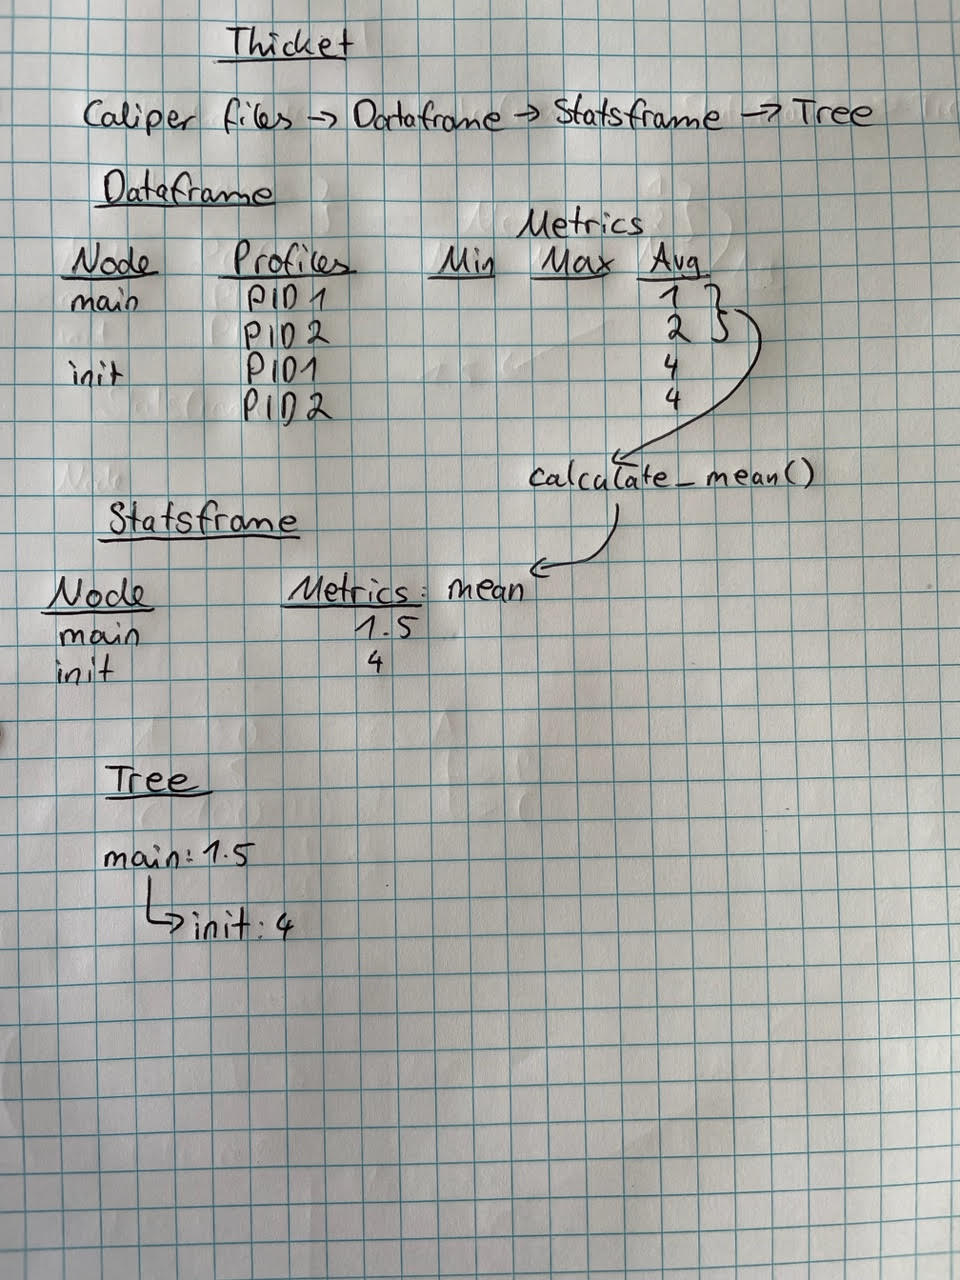 Thicket
Caliper files → Dataframe → Statsframe → Tree
Dataframe
Metrics
Node Profiles Min Max Avg
main PID 1 1
PID 2 2
init PID1 4
PID 2 4
calculate_mean()
Statsframe
Node Metrics: mean
main 1.5
init 4
Tree
main: 1.5
↳ init: 4